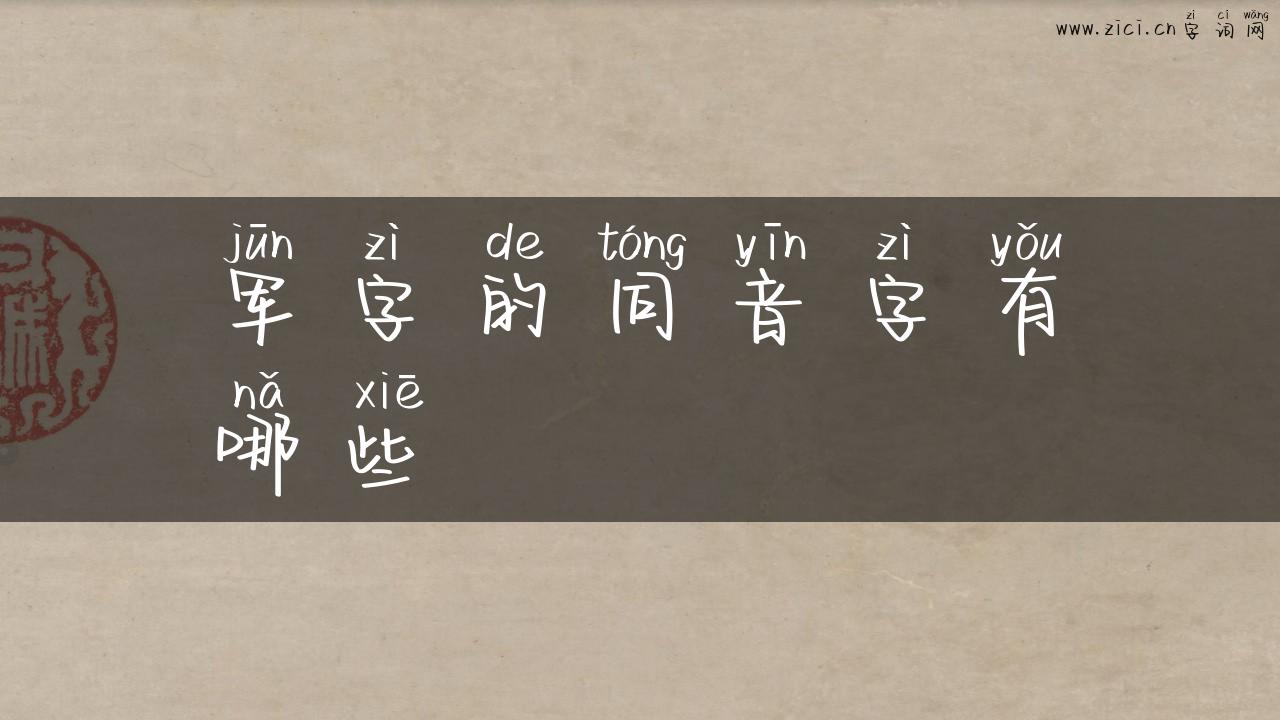 zì cí wǎng
www.zici.cn 字词网
jūn zì de tóng yīn zì yǒu
军字的同音字有
nǎ xiē
哪些